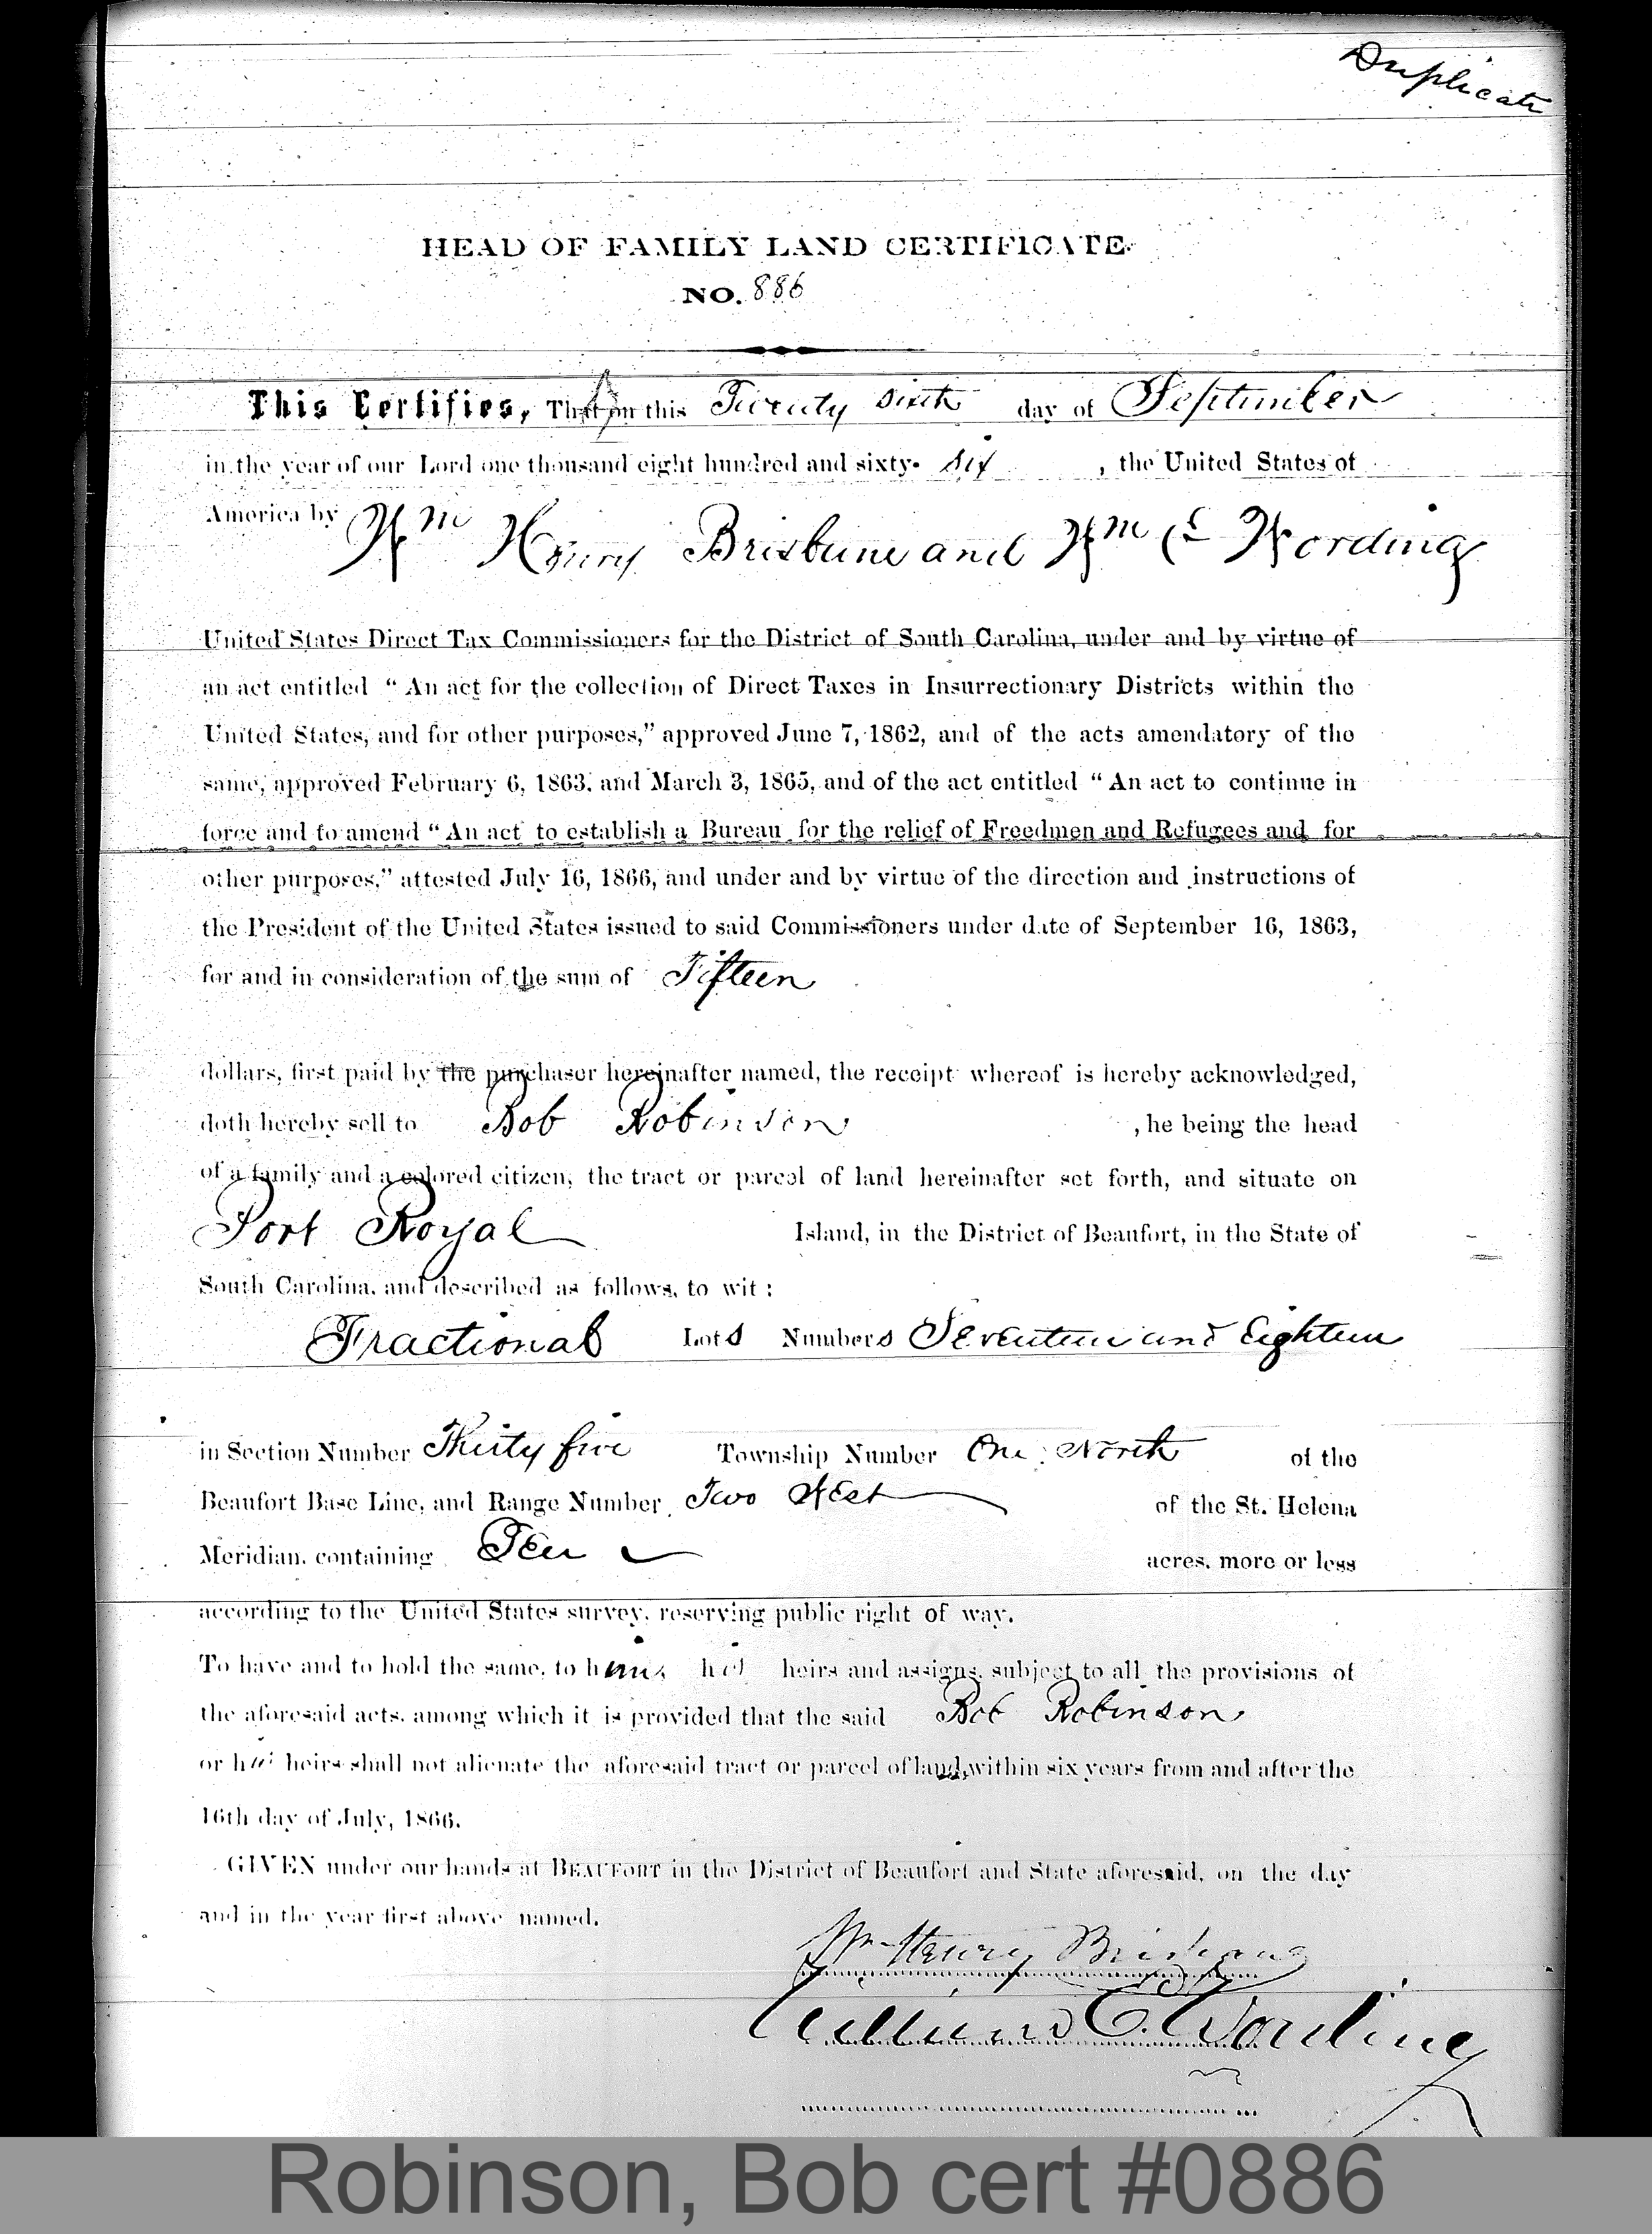 Duplicate
HEAD OF FAMILY LAND CERTIFICATE.
NO. 886
This Certifies, That on this Twenty Sixth day of September
in the year of our Lord one thousand eight hundred and sixty- Six , the United States of
America by Wm Henry Brisbane and Wm E Wording
United States Direct Tax Commissioners for the District of South Carolina, under and by virtue of
an act entitled “ An act for the collection of Direct Taxes in Insurrectionary Districts within the
United States, and for other purposes,” approved June 7, 1862, and of the acts amendatory of the
same, approved February 6, 1863. and March 3, 1865, and of the act entitled “ An act to continue in
force and to amend “ An act to establish a Bureau for the relief of Freedmen and Refugees and for
other purposes,” attested July 16, 1866, and under and by virtue of the direction and instructions of
the President of the United States issued to said Commissioners under date of September 16, 1863,
for and in consideration of the sum of Fifteen
dollars, first paid by the purchaser hereinafter named, the receipt whereof is hereby acknowledged,
doth hereby sell to Bob Robinson , he being the head
of a family and a colored citizen, the tract or parcel of land hereinafter set forth, and situate on
Port Royal Island, in the District of Beaufort, in the State of
South Carolina, and described as follows, to wit :
Fractional Lots Numbers Seventeen and Eighteen
in Section Number Thirty five Township Number One North of the
Beaufort Base Line, and Range Number Two West of the St. Helena
Meridian, containing Ten acres, more or less
according to the United States survey, reserving public right of way.
To have and to hold the same, to him, his heirs and assigns, subject to all the provisions of
the aforesaid acts, among which it is provided that the said Bob Robinson
or his heirs shall not alienate the aforesaid tract or parcel of land, within six years from and after the
16th day of July, 1866.
GIVEN under our hands at BEAUFORT in the District of Beaufort and State aforesaid, on the day
and in the year first above named.
Wm Henry Brisbane
William E. Wording
Robinson, Bob cert #0886